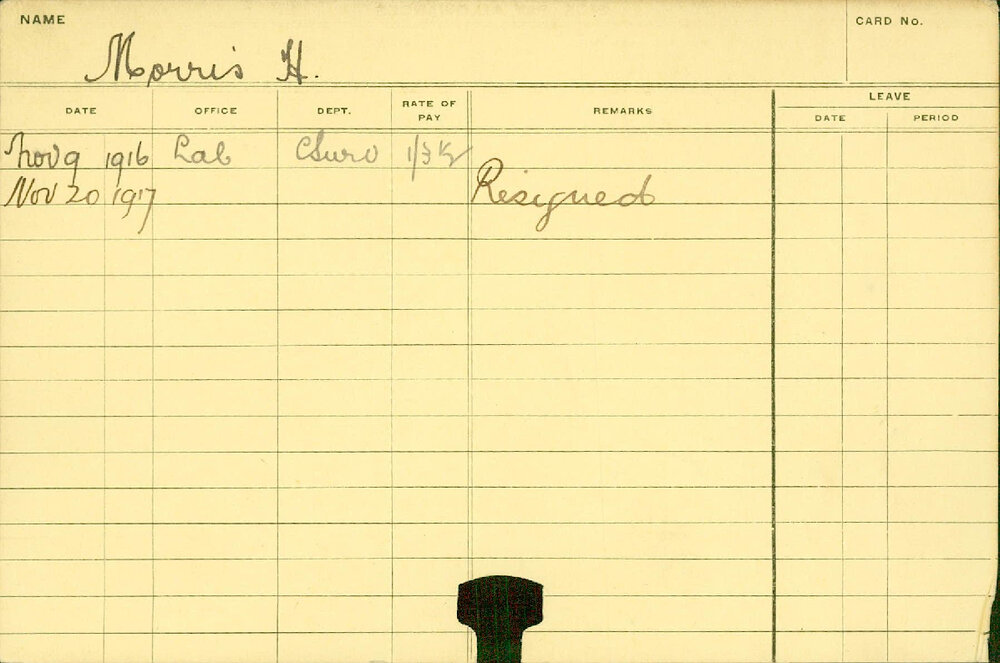 NAME
CARD No.
Morris H.
DATE OFFICE DEPT. RATE OF PAY REMARKS LEAVE
DATE PERIOD
Nov 9 1916 Lab CSurv
Nov 20 1917 Resigned